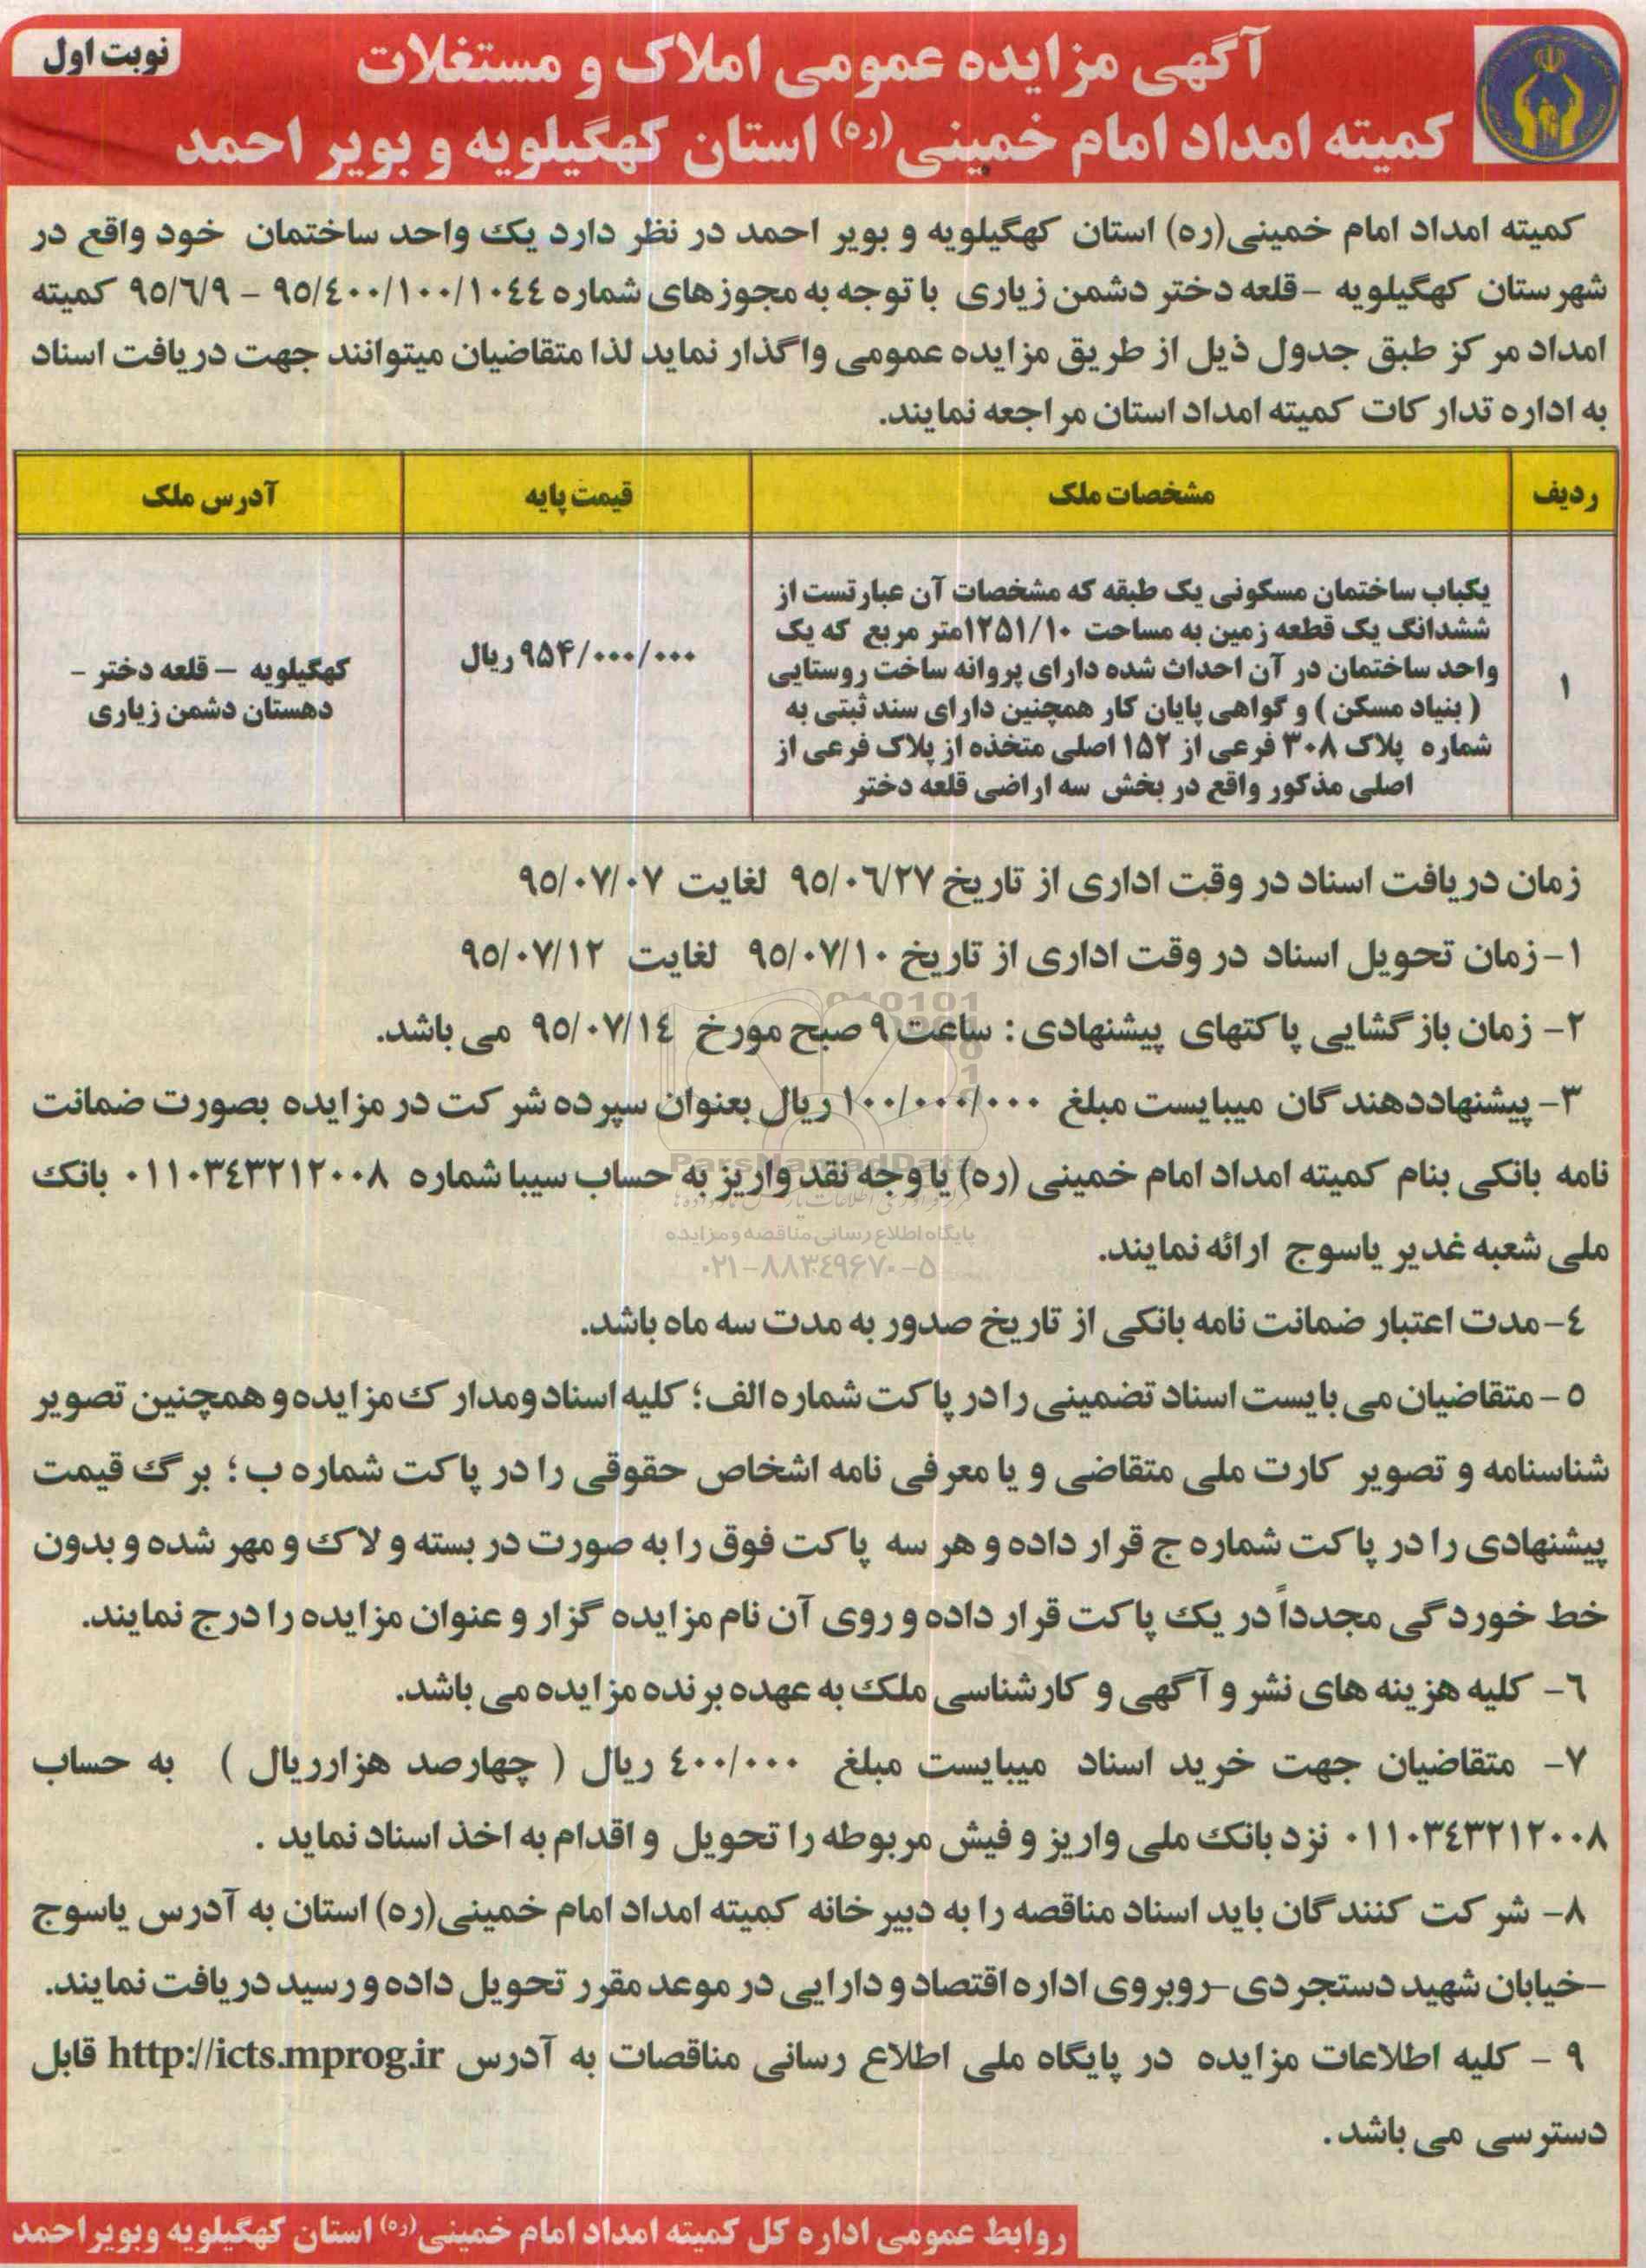 نوبت اول
آگهی مزایده عمومی املاک و مستغلات
کمیته امداد امام خمینی(ره) استان کهگیلویه و بویر احمد
کمیته امداد امام خمینی(ره) استان کهگیلویه و بویر احمد در نظر دارد یک واحد ساختمان خود واقع در
شهرستان کهگیلویه -قلعه دختر دشمن زیاری با توجه به مجوزهای شماره ۹۵/۴۰۰/۱۰۰/۱۰۴۴ - ۹۵/۶/۹ کمیته
امداد مرکز طبق جدول ذیل از طریق مزایده عمومی واگذار نماید لذا متقاضیان میتوانند جهت دریافت اسناد
به اداره تدارکات کمیته امداد استان مراجعه نمایند.
ردیف
مشخصات ملک
قیمت پایه
آدرس ملک
۱
یکباب ساختمان مسکونی یک طبقه که مشخصات آن عبارتست از
ششدانگ یک قطعه زمین به مساحت ۱۲۵۱/۱۰متر مربع که یک
واحد ساختمان در آن احداث شده دارای پروانه ساخت روستایی
( بنیاد مسکن ) و گواهی پایان کار همچنین دارای سند ثبتی به
شماره پلاک ۳۰۸ فرعی از ۱۵۲ اصلی متخذه از پلاک فرعی از
اصلی مذکور واقع در بخش سه اراضی قلعه دختر
۹۵۴/۰۰۰/۰۰۰ ریال
کهگیلویه – قلعه دختر –
دهستان دشمن زیاری
زمان دریافت اسناد در وقت اداری از تاریخ ۹۵/۰۶/۲۷ لغایت ۹۵/۰۷/۰۷
۱-زمان تحویل اسناد در وقت اداری از تاریخ ۹۵/۰۷/۱۰ لغایت ۹۵/۰۷/۱۲
۲- زمان بازگشایی پاکتهای پیشنهادی : ساعت ۹ صبح مورخ ۹۵/۰۷/۱۴ می باشد.
۳- پیشنهاددهندگان میبایست مبلغ ۱۰۰/۰۰۰/۰۰۰ ریال بعنوان سپرده شرکت در مزایده بصورت ضمانت
نامه بانکی بنام کمیته امداد امام خمینی (ره) یا وجه نقد واریز به حساب سیبا شماره ۰۱۱۰۳۴۳۲۱۲۰۰۸ بانک
ملی شعبه غدیر یاسوج ارائه نمایند.
ParsNamadData
پایگاه اطلاع رسانی مناقصه و مزایده
۰۲۱-۸۸۳۴۹۶۷۰-۵
۴-مدت اعتبار ضمانت نامه بانکی از تاریخ صدور به مدت سه ماه باشد.
۵ - متقاضیان می بایست اسناد تضمینی را در پاکت شماره الف؛ کلیه اسناد ومدارک مزایده و همچنین تصویر
شناسنامه و تصویر کارت ملی متقاضی و یا معرفی نامه اشخاص حقوقی را در پاکت شماره ب؛ برگ قیمت
پیشنهادی را در پاکت شماره ج قرار داده و هر سه پاکت فوق را به صورت در بسته و لاک و مهر شده و بدون
خط خوردگی مجدداً در یک پاکت قرار داده و روی آن نام مزایده گزار و عنوان مزایده را درج نمایند.
۶- کلیه هزینه های نشر و آگهی و کارشناسی ملک به عهده برنده مزایده می باشد.
۷- متقاضیان جهت خرید اسناد میبایست مبلغ ۴۰۰/۰۰۰ ریال ( چهارصد هزارریال ) به حساب
۰۱۱۰۳۴۳۲۱۲۰۰۸ نزد بانک ملی واریز و فیش مربوطه را تحویل و اقدام به اخذ اسناد نماید .
۸- شرکت کنندگان باید اسناد مناقصه را به دبیرخانه کمیته امداد امام خمینی(ره) استان به آدرس یاسوج
-خیابان شهید دستجردی-روبروی اداره اقتصاد و دارایی در موعد مقرر تحویل داده و رسید دریافت نمایند.
۹ - کلیه اطلاعات مزایده در پایگاه ملی اطلاع رسانی مناقصات به آدرس http://icts.mprog.ir قابل
دسترسی می باشد.
روابط عمومی اداره کل کمیته امداد امام خمینی(ره) استان کهگیلویه وبویراحمد